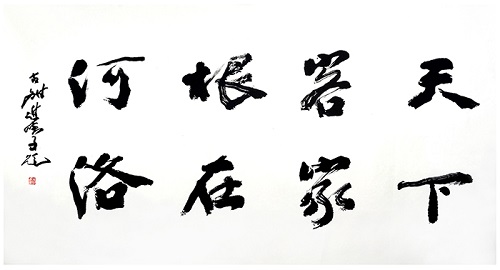 天下
客家
根在
河洛